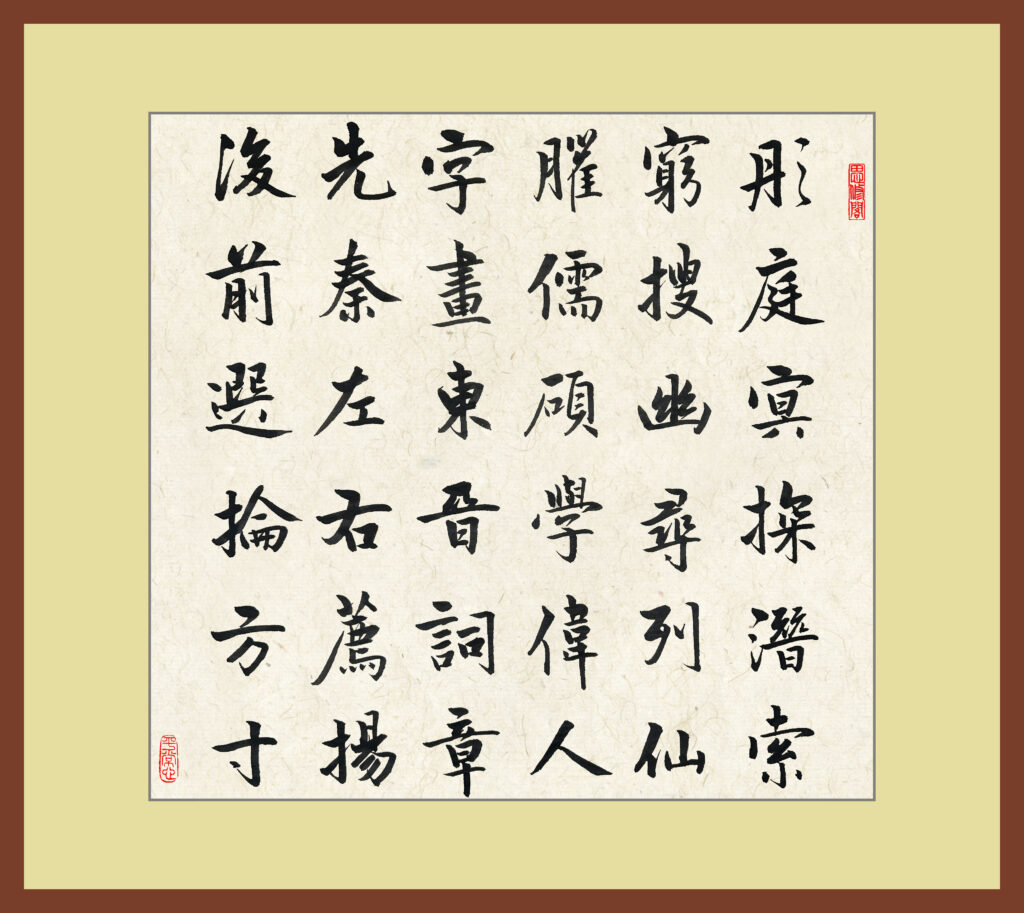 思修閣
彤庭冥探潛索
窮搜幽尋列仙
臞儒碩學偉人
字畫東晉詞章
先秦左右薦揚
後前選掄方寸
平常心